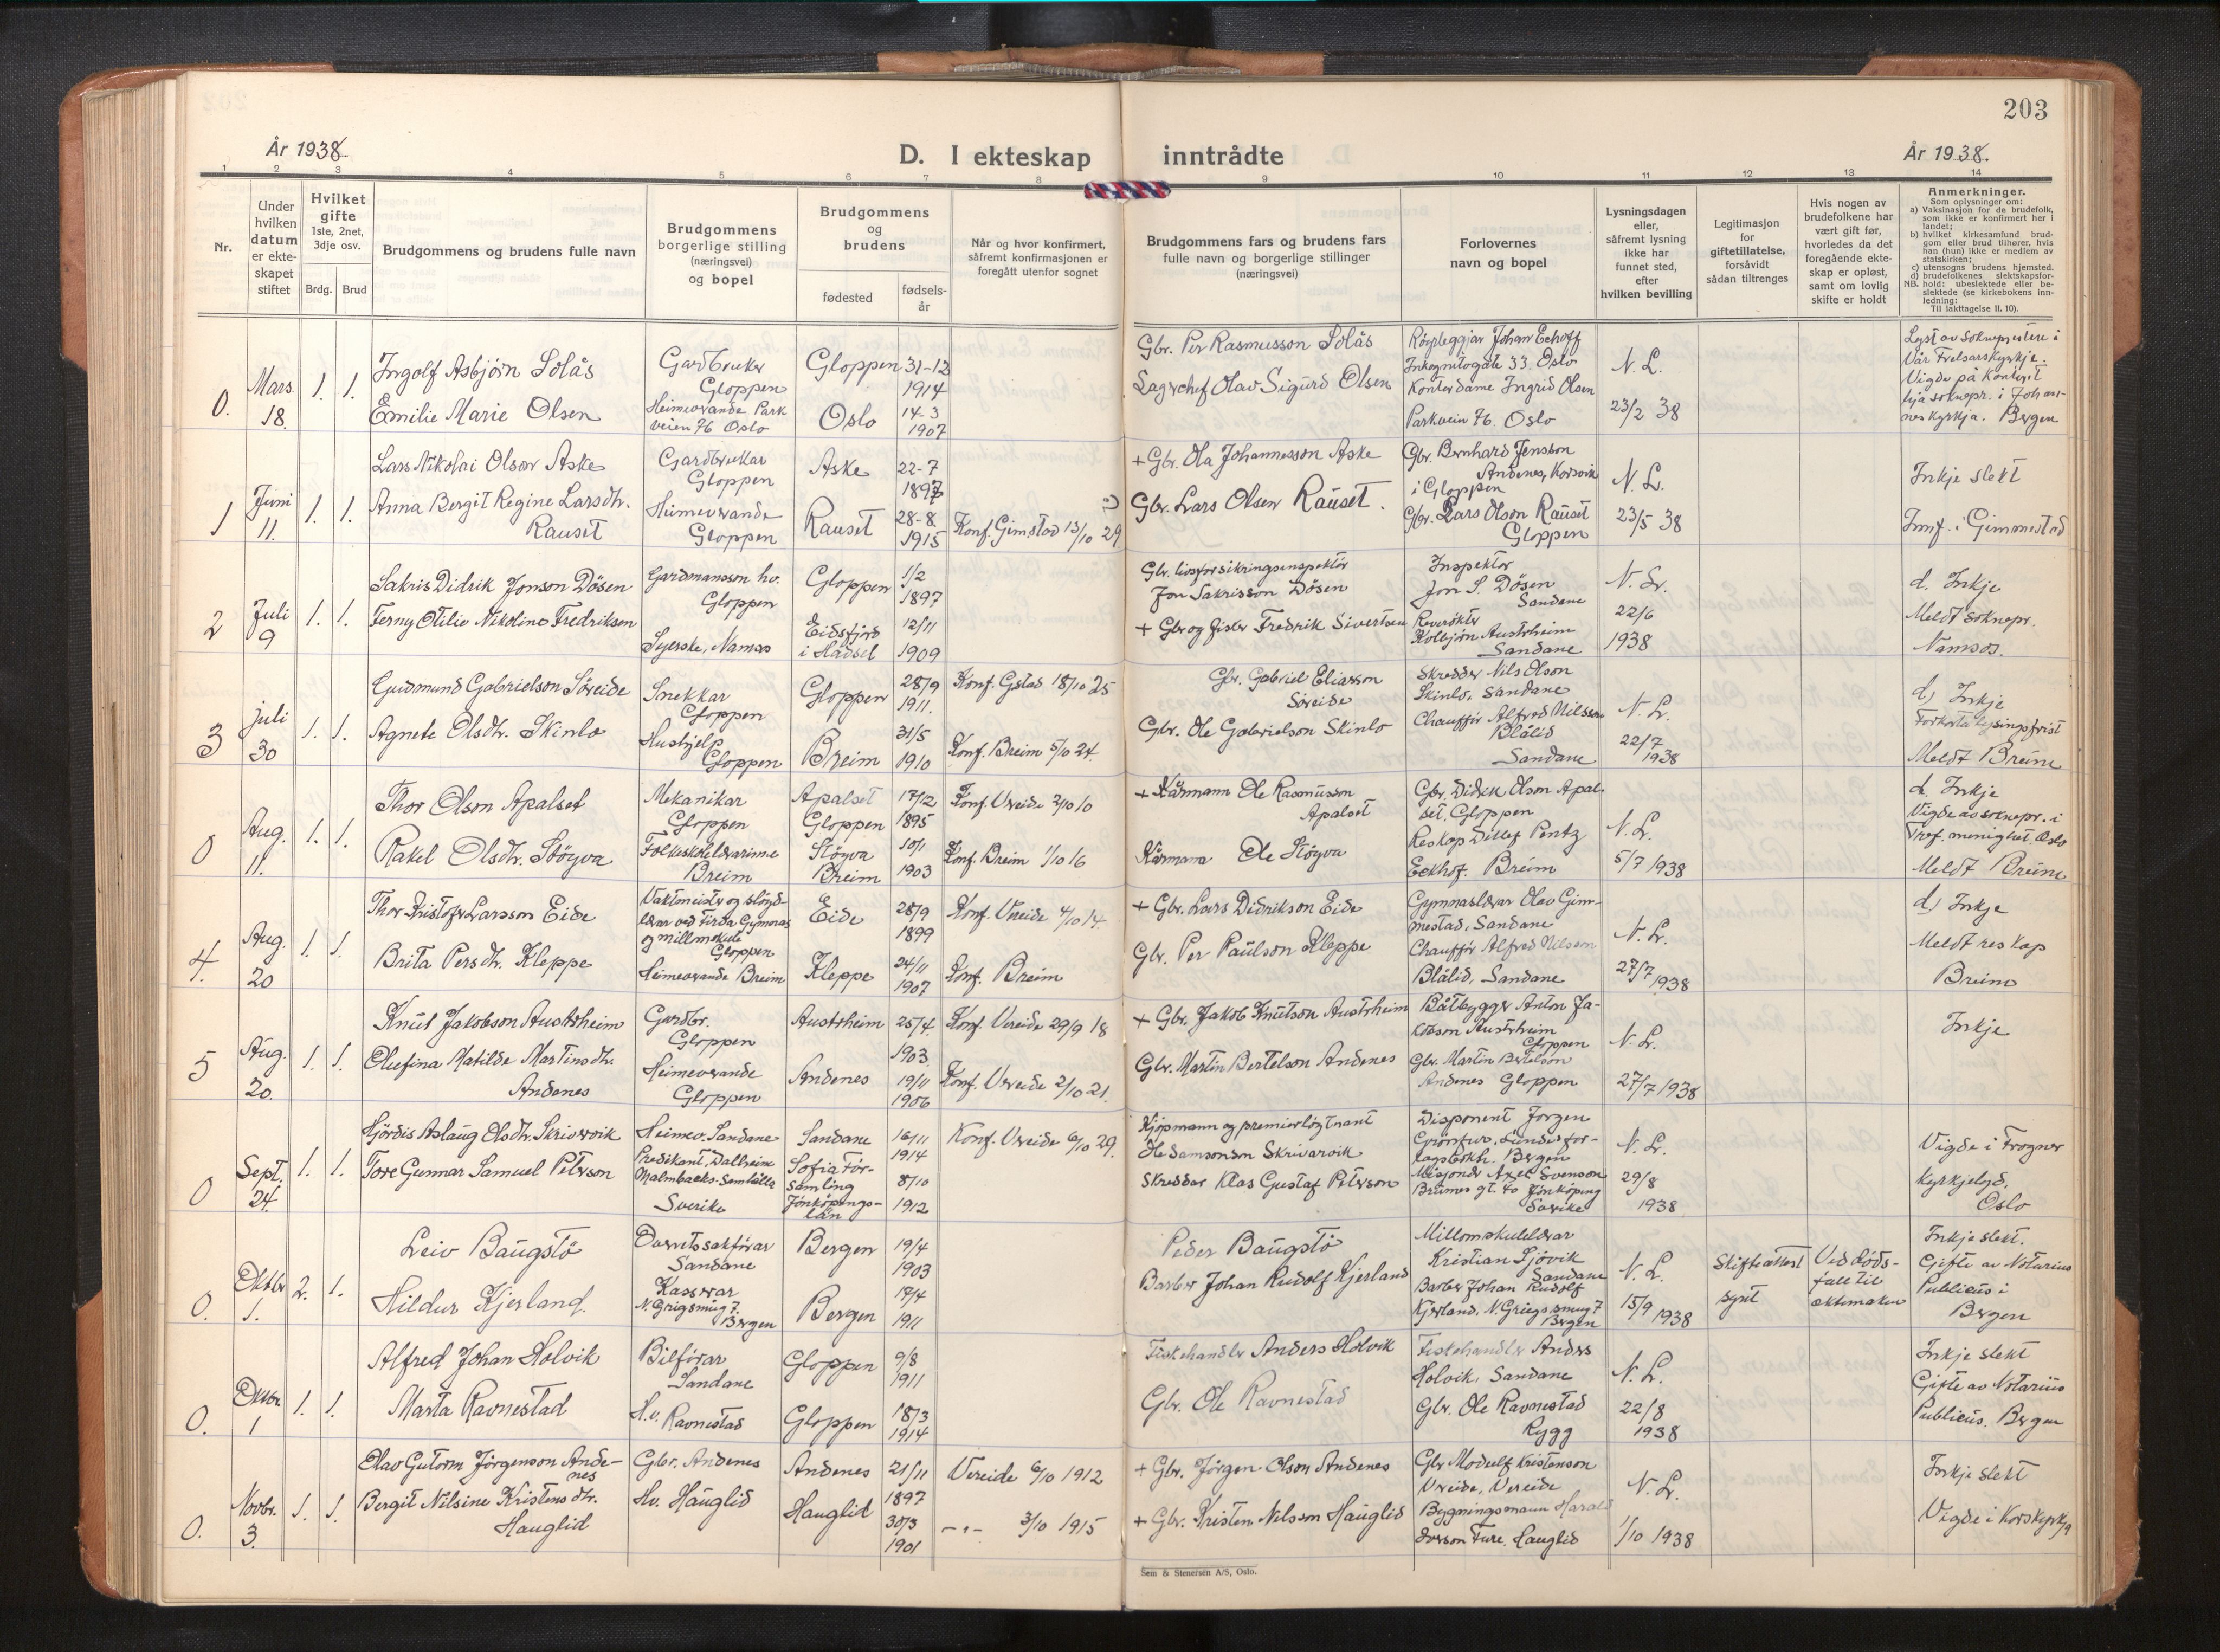 203
År 1938.
D. I ekteskap inntrådte
År 1938.
1 2 3 4 5 6 7 8 9 10 11 12 13 14
Nr.
Under hvilken datum er ekteskapet stiftet
Hvilket gifte 1ste, 2net, 3dje osv.
Brdg. Brud
Brudgommens og brudens fulle navn
Brudgommens borgerlige stilling (næringsvei) og bopel
Brudgommens og brudens
fødested
fødsels-år
Når og hvor konfirmert, såfremt konfirmasjonen er foregått utenfor sognet
Brudgommens fars og brudens fars fulle navn og borgerlige stillinger (næringsvei)
Forlovernes navn og bopel
Lysningsdagen eller, såfremt lysning ikke har funnet sted, efter hvilken bevilling
Legitimasjon for giftetillatelse, forsåvidt sådan tiltrenges
Hvis nogen av brudefolkene har vært gift før, hvorledes da det foregående ekteskap er opløst, samt om lovlig skifte er holdt
Anmerkninger.
Som oplysninger om:
a) Vaksinasjon for de brudefolk, som ikke er konfirmert her i landet;
b) hvilket kirkesamfund brudgom eller brud tilhører, hvis han (hun) ikke er medlem av statskirken;
c) utensogns brudens hjemsted.
d) brudefolkenes slektskapsforhold: ubeslektede eller beslektede (se kirkebokens innledning:
NB.
Til iakttagelse II. 10).
0. Mars 18. 1. 1.
Ingolf Asbjørn Solås
Gardbruker Gloppen
Gloppen 31-12 1914
Gbr. Per Rasmusson Solås
Røyrleggjar Johan Eckoff
Inkognitogate 33. Oslo
N. L.
Emilie Marie Olsen
Heimeverande Parkveien 76 Oslo
Oslo 14-3 1907
Lagerchef Olav Sigurd Olsen
Kontordame Ingrid Olsen
Parkvein 76. Oslo
23/2 38
Lyst av soknepresten i
Vår Frelsarskyrkje.
Vigde på kontoret
hja soknepr. i Johan-
neskyrkja. Bergen
1 Juni 11. 1. 1.
Lars Nikolai Olson Aske
Gardbrukar Gloppen
Aske 22-7 1897
+ Gbr. Ola Johannesson Aske
Gbr. Bernhard Jensson
Andenes, Korsvik
i Gloppen
N. L.
Inkje slekt
Anna Bergit Regine Larsdtr.
Rauset
Heimeverande
Gloppen
Rauset 28-8 1915
Konf. Gimstad 13/10 29
Gbr. Lars Olsen Rauset.
Gbr. Lars Olson Rauset
Gloppen
23/5 38
Innf. i Gimmestad
2 Juli 9 1. 1.
Sakris Didrik Jonson Døsen
Gardmannsson hv.
Gloppen
Gloppen 1/2 1897
Gbr. livsforsikringsinspektør
Jon Sakrisson Døsen
Inspektør
Jon S. Døsen
Sandane
N. L.
d. Inkje
Ferny Otilie Nikoline Fredriksen
Syerske, Namsos
Eidsfjord
i Hadsel
12/11 1909
+ Gbr og fisker Fredrik Sivertsen
Reverøkter
Kolbjørn Austrheim
Sandane
22/6 1938
Meldt soknepr.
Namsos.
3 juli 30 1. 1.
Gudmund Gabrielson Søreide
Snekkar
Gloppen
Gloppen 28/9 1911.
Konf. Gstad 18/10 25
Gbr. Gabriel Eliasson
Søreide
Skredder Nils Olson
Skinlo, Sandane
N. L.
d) Inkje
Forkorta lysingsfrist
Agnete Olsdtr. Skinlo
Hushjelp
Gloppen
Breim 31/5 1910
Konf. Breim 5/10 24.
Gbr. Ole Gabrielson Skinlo
Chauffør Alfred Nilsson
Blålid
Sandane
22/7 1938
Meldt Breim
0 Aug. 11. 1. 1.
Thor Olson Apalset
Mekanikar
Gloppen
Apalset
Gloppen
17/12 1895
Konf. Vereide 2/10 10
+ Kårmann Ole Rasmusson
Apalset
Gbr. Didrik Olson Apal-
set, Gloppen
N. L.
d. Inkje
Vigde av soknepr. i
Tref. menighet Oslo
Rakel Olsdtr. Støyva
Folkeskolelærarinne
Breim
Støyva
Breim
10/1 1903
Konf. Breim 1/10 16
Kårmann Ole Støyva
Reskap Ditlef Pentz
Eckhof. Breim
5/7 1938
Meldt Breim
4. Aug. 20 1. 1.
Thor Kristofer Larsson Eide
Vaktmeister og sløyd-
lærar ved Firda Gymnas
og millomskule
Gloppen
Eide 28/9 1899
Konf. Vereide 4/10 14.
+ Gbr. Lars Didrikson Eide
Gymnaslærar Olav Gim-
mestad, Sandane
N. L.
d) Inkje
Brita Persdtr. Kleppe
Heimeverande Breim
Kleppe 24/11 1907
Konf. Breim
Gbr. Per Paulson Kleppe
Chauffør Alfred Nilsson
Blålid, Sandane
27/7 1938
Meldt reskap
Breim
5 Aug. 20. 1. 1.
Knut Jakobson Austrheim
Gardbr.
Gloppen
Austrheim 25/4 1903.
Konf. Vereide 29/9 18
+ Gbr. Jakob Knutson Austrheim
Båtbygger Anton Ja-
kobson Austrheim
Gloppen
N. L.
Inkje
Olufina Matilde Martinsdtr.
Andenes
Heimeverande
Gloppen
Andenes 19/11 1906
Konf. Vereide 2/10 21.
Gbr. Martin Bertelson Andenes
Gbr. Martin Bertelson
Andenes Gloppen
27/7 1938
0 Sept. 24. 1. 1.
Hjørdis Aslaug Olsdtr. Skrivarvik
Heimev. Sandane
Sandane 16/11 1914
Konf. Vereide 6/10 29.
Kjøpmann og premierløytnant
Ole Samsonson Skrivarvik
Disponent Jørgen
Bergen
N. L.
Vigde i Frogner
Tore Gunnar Samuel Peterson
Predikant, Dalheim
Malmbäcks-Samhälle
Sverike
Sofia För-
samling
Jönköpings-
län
8/10 1912
Skreddar Klas Gustaf Peterson
Misjonær Axel Svenson
Brunnes gt. 40 Jönköping
Sverike
29/8 1938
kyrkjelyd,
Oslo
0. Oktbr 1. 2. 1.
Leiv Baugstø
Overrettssakførar
Sandane
Bergen 19/4 1903
Peder Baugstø
Millomskulelærar
Kristian Sjøvik
Sandane
N. L.
Skifteattest
synt
Ved døds-
fall til
ektemaken
Inkje slekt.
Gifte av Notarius
Publicus i
Bergen
Hildur Kjerland.
Kasserar
N. Grigsmug 7.
Bergen
Bergen 17/4 1911
Barber Johan Rudolf Kjerland
Barber Johan Rudolf
Kjerland. N. Griegs smug 7
Bergen
15/9 1938
0. Oktbr. 1 1. 1.
Alfred Johan Holvik
Bilførar
Sandane
Gloppen 9/8 1911
Fiskehandler Anders Holvik
Fiskehandler Anders
Holvik, Sandane
N. L.
Inkje slekt
Gifte av Notarius
Publicus. Bergen
Marta Ravnestad
H.v. Ravnestad
Gloppen 18/3 1914
Gbr. Ole Ravnestad
Gbr. Ole Ravnestad
Rygg
22/8 1938
0. Novbr. 3. 1. 1.
Olav Gutorm Jørgenson Ande-
nes
Gbr. Andenes
Andenes 21/11 1897
Vereide 6/10 1912
+ Gbr. Jørgen Olson Andenes
Gbr Modulf Kristenson
Vereide, Vereide
N. L.
Inkje slekt
Bergit Nilsine Kristensdtr.
Hauglid
Hv. Hauglid
Hauglid 30/3 1901
— " — 3/10 1915
+ Gbr. Kristen Nilsson Hauglid
Bygningsmann Harald
Iverson Ture. Hauglid
1/10 1938
Vigde i Korskyrkja
Sem & Stenersen A/S, Oslo.